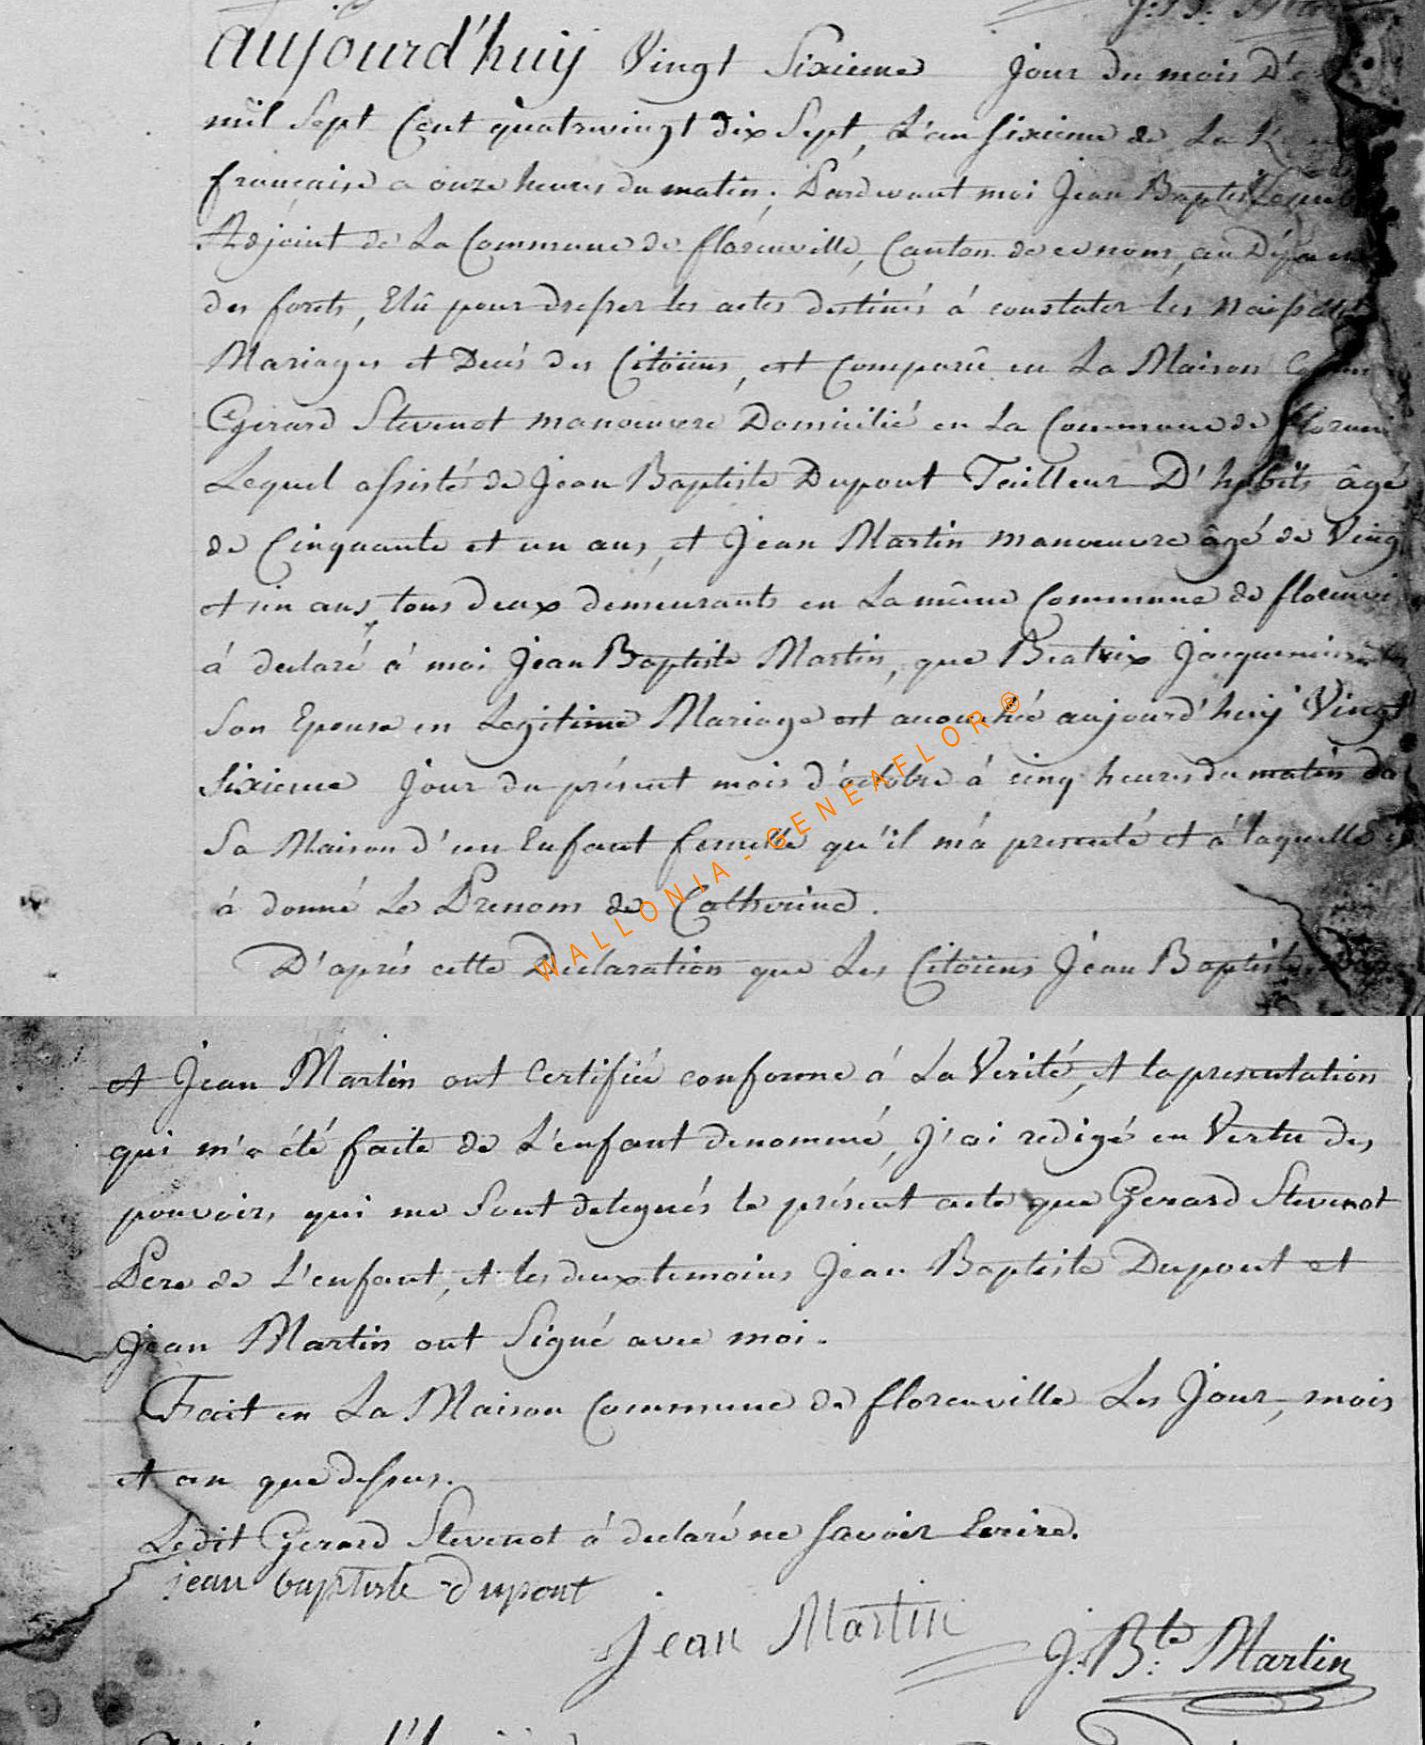 aujourd'huy Vingt Sixieme Jour du mois D'
mil Sept Cent quatrevingt dix Sept, L'an Sixieme de La
française a onze heures du matin; Pardevant moi Jean Baptiste
Adjoint de La Commune de florenville, Canton de ce nom, au
des forêts, Elû pour dresser les actes destinés á constater les
Mariages et Decès des Citöiens, est Comparû en La Maison
Gerard Stevenot manoeuvre Domicilié en La Commune de
Lequel assisté de Jean Baptiste Dupont Tailleur D'habits âgé
de Cinquante et un ans, et Jean Martin manoeuvre âgé de Vingt
et sin ans, tous deux demeurants en La même Commune de
á declaré á moi Jean Baptiste Martin, que Beatrix
Son Epouse en Legitime Mariage est accouchée aujourd'huy Vingt
Sixieme Jour du présent mois d'octobre á cinq heures du matin da
Sa Maison d'un Enfant femelle qu'il m'a presenté et a laquelle
á donné Le Prenom de Catherine.
D'aprés cette Declaration que Les Citöiens Jean Baptiste
et Jean Martin ont Certifiée conforme á La Verité, et la presentation
qui m'a été faite de L'enfant denommé, J'ai redigé en Vertu des
pouvoirs qui me Sont delegués le présent acte que Gerard Stevenot
Pere de L'enfant, et les deux temoins Jean Baptiste Dupont et
Jean Martin ont Signé avec moi.
Fait en La Maison Commune de florenville Les Jour, mois
et an que dessus.
Ledit Gerard Stevenot á declaré ne Savoir Ecrire.
jean baptiste dupont
Jean Martin
J: B:te Martin
WALLONIA - GENEAFLOR ®